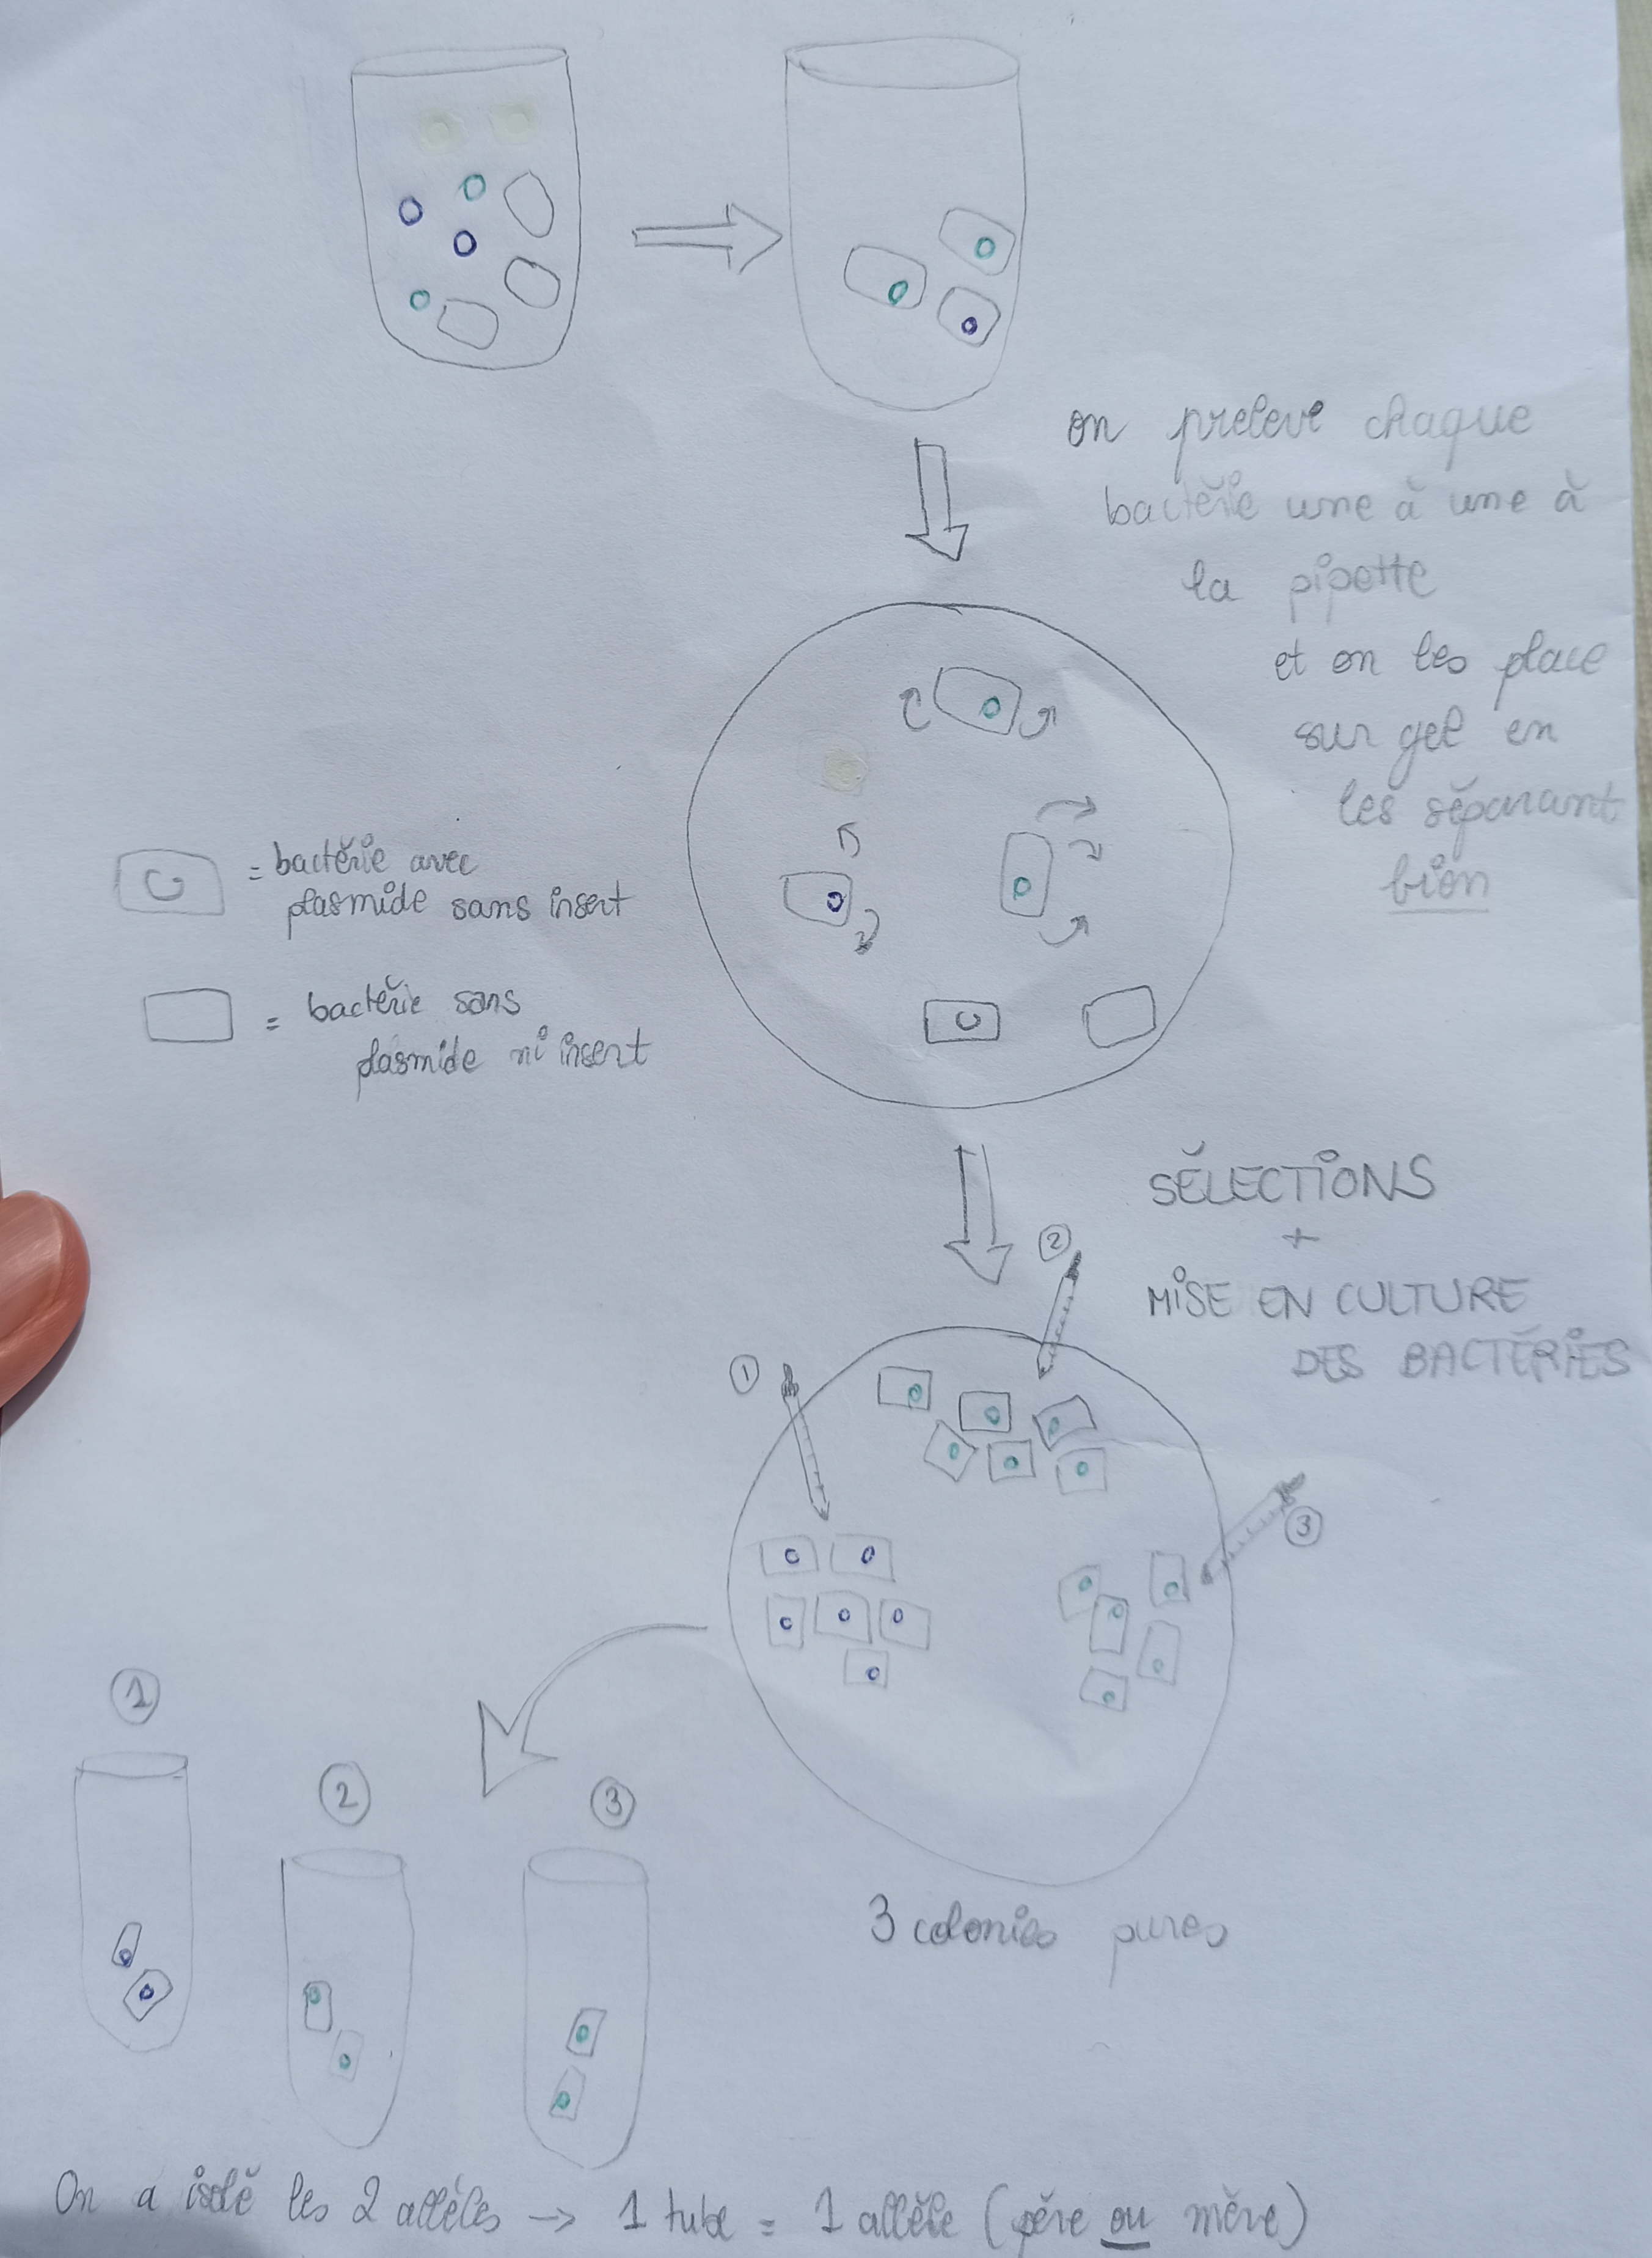 on preleve chaque
bactérie une à une à
la pipette
et on les place
sur gel en
les séparant
bien
= bactérie avec
plasmide sans insert
= bactérie sans
plasmide ni insert
SÉLECTIONS
+
MISE EN CULTURE
DES BACTÉRIES
2
1
3
3 colonies pures
1
2
3
On a isolé les 2 allèles → 1 tube = 1 allèle (père ou mère)